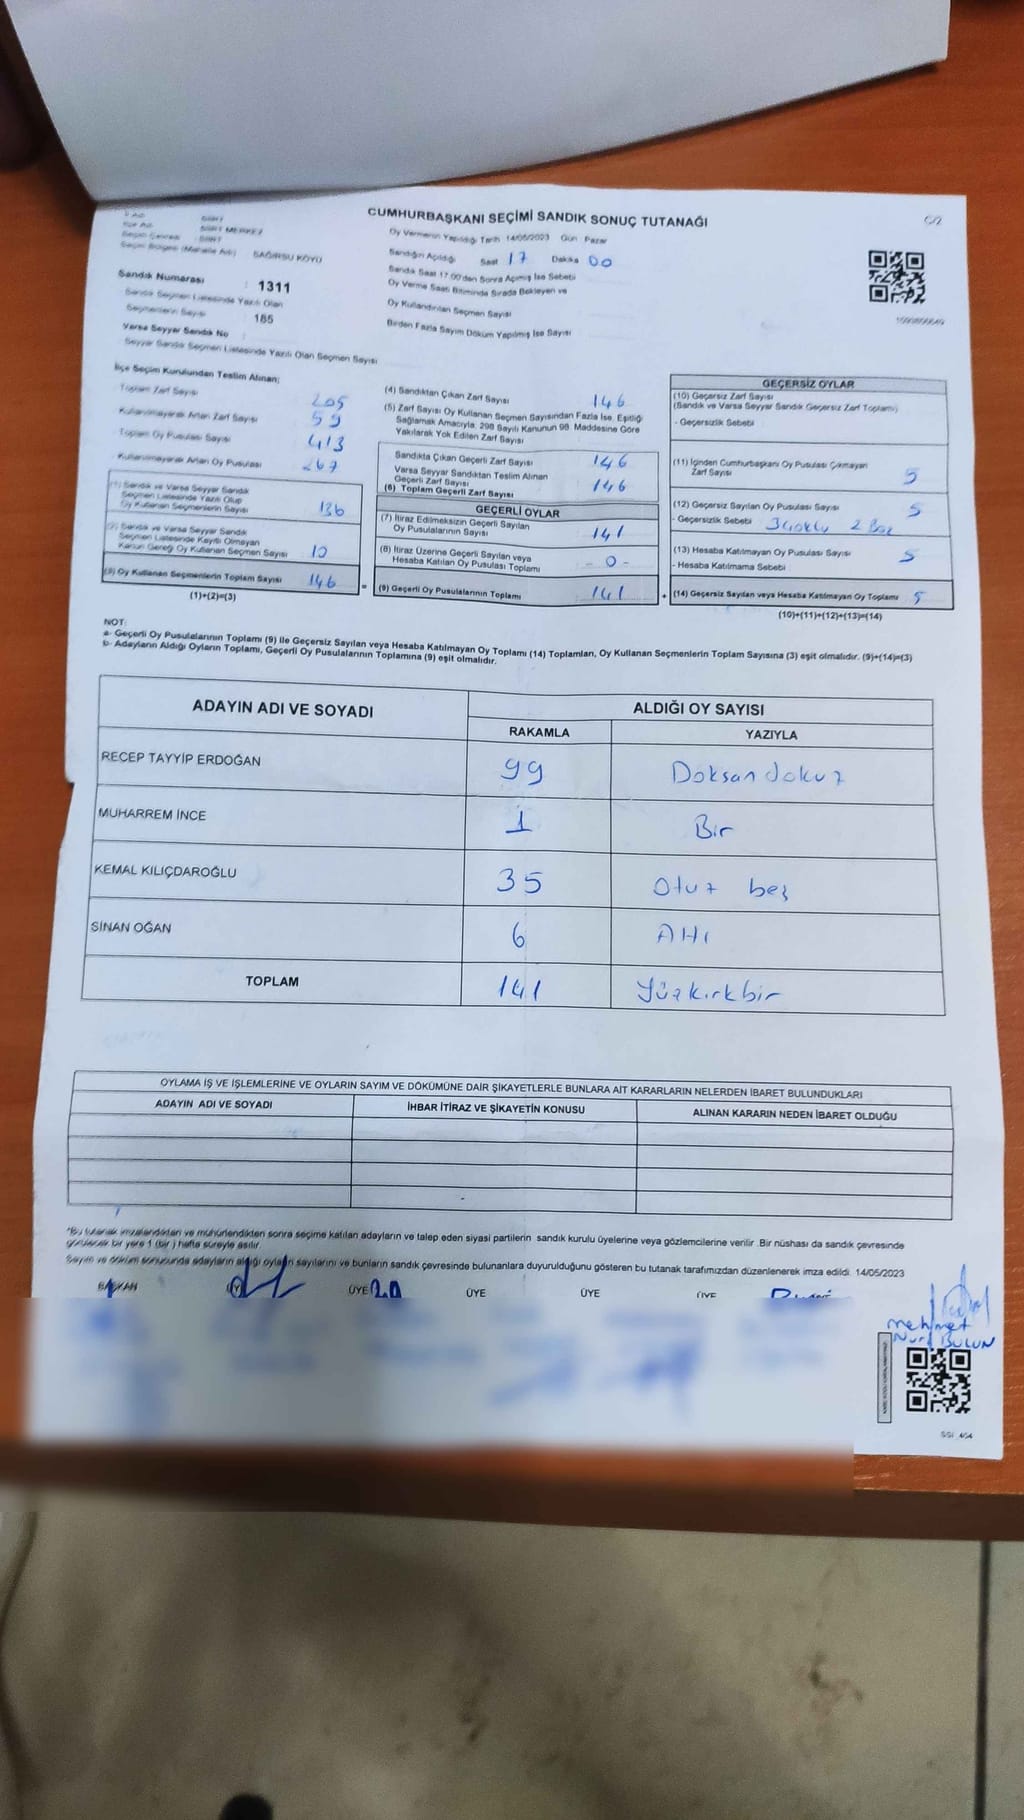 CUMHURBAŞKANI SEÇİMİ SANDIK SONUÇ TUTANAĞI
C/2
İl Adı SİİRT
İlçe Adı SİİRT MERKEZ
Seçim Çevresi SİİRT
Seçim Bölgesi (Mahalle Adı) SAĞIRSU KÖYÜ
Sandık Numarası : 1311
Sandık Seçmen Listesinde Yazılı Olan
Seçmenlerin Sayısı : 185
Varsa Seyyar Sandık No
Seyyar Sandık Seçmen Listesinde Yazılı Olan Seçmen Sayısı
Oy Vermenin Yapıldığı Tarih 14/05/2023 Gün Pazar
Sandığın Açıldığı Saat 17 Dakika 00
Sandık Saat 17.00'den Sonra Açılmış İse Sebebi
Oy Verme Saati Bitiminde Sırada Bekleyen ve
Oy Kullandırılan Seçmen Sayısı
Birden Fazla Sayım Döküm Yapılmış İse Sayısı
İlçe Seçim Kurulundan Teslim Alınan;
Toplam Zarf Sayısı 205
Kullanılmayarak Artan Zarf Sayısı 59
Toplam Oy Pusulası Sayısı 413
Kullanılmayarak Artan Oy Pusulası 267
(1) Sandık ve Varsa Seyyar Sandık
Seçmen Listesinde Yazılı Olup
Oy Kullanan Seçmenlerin Sayısı 136
(2) Sandık ve Varsa Seyyar Sandık
Seçmen Listesinde Kayıtlı Olmayan
Kanun Gereği Oy Kullanan Seçmen Sayısı 10
(3) Oy Kullanan Seçmenlerin Toplam Sayısı 146
(1)+(2)=(3)
(4) Sandıktan Çıkan Zarf Sayısı 146
(5) Zarf Sayısı Oy Kullanan Seçmen Sayısından Fazla İse, Eşitliği
Sağlamak Amacıyla, 298 Sayılı Kanunun 98. Maddesine Göre
Yakılarak Yok Edilen Zarf Sayısı
Sandıkta Çıkan Geçerli Zarf Sayısı 146
Varsa Seyyar Sandıktan Teslim Alınan
Geçerli Zarf Sayısı
(6) Toplam Geçerli Zarf Sayısı 146
GEÇERLİ OYLAR
(7) İtiraz Edilmeksizin Geçerli Sayılan
Oy Pusulalarının Sayısı 141
(8) İtiraz Üzerine Geçerli Sayılan veya
Hesaba Katılan Oy Pusulası Toplamı - 0 -
(9) Geçerli Oy Pusulalarının Toplamı 141
GEÇERSİZ OYLAR
(10) Geçersiz Zarf Sayısı
(Sandık ve Varsa Seyyar Sandık Geçersiz Zarf Toplamı)
- Geçersizlik Sebebi
(11) İçinden Cumhurbaşkanı Oy Pusulası Çıkmayan
Zarf Sayısı 5
(12) Geçersiz Sayılan Oy Pusulası Sayısı 5
- Geçersizlik Sebebi 2 Boş
(13) Hesaba Katılmayan Oy Pusulası Sayısı 5
- Hesaba Katılmama Sebebi
(14) Geçersiz Sayılan veya Hesaba Katılmayan Oy Toplamı 5
(10)+(11)+(12)+(13)=(14)
NOT:
a- Geçerli Oy Pusulalarının Toplamı (9) ile Geçersiz Sayılan veya Hesaba Katılmayan Oy Toplamı (14) Toplamları, Oy Kullanan Seçmenlerin Toplam Sayısına (3) eşit olmalıdır. (9)+(14)=(3)
b- Adayların Aldığı Oyların Toplamı, Geçerli Oy Pusulalarının Toplamına (9) eşit olmalıdır.
ADAYIN ADI VE SOYADI
ALDIĞI OY SAYISI
RAKAMLA YAZIYLA
RECEP TAYYİP ERDOĞAN 99 Doksan dokuz
MUHARREM İNCE 1 Bir
KEMAL KILIÇDAROĞLU 35 Otuz beş
SİNAN OĞAN 6 Altı
TOPLAM 141 Yüzkırkbir
OYLAMA İŞ VE İŞLEMLERİNE VE OYLARIN SAYIM VE DÖKÜMÜNE DAİR ŞİKAYETLERLE BUNLARA AİT KARARLARIN NELERDEN İBARET BULUNDUKLARI
ADAYIN ADI VE SOYADI
İHBAR İTİRAZ VE ŞİKAYETİN KONUSU
ALINAN KARARIN NEDEN İBARET OLDUĞU
*Bu tutanak imzalandıktan ve mühürlendikten sonra seçime katılan adayların ve talep eden siyasi partilerin sandık kurulu üyelerine veya gözlemcilerine verilir. Bir nüshası da sandık çevresinde
görülecek bir yere 1 (bir) hafta süreyle asılır.
Sayım ve döküm sonucunda adayların aldığı oyların sayılarını ve bunların sandık çevresinde bulunanlara duyurulduğunu gösteren bu tutanak tarafımızdan düzenlenerek imza edildi. 14/05/2023
BAŞKAN ÜYE ÜYE ÜYE ÜYE ÜYE
Mehmet
Nuri BULUN